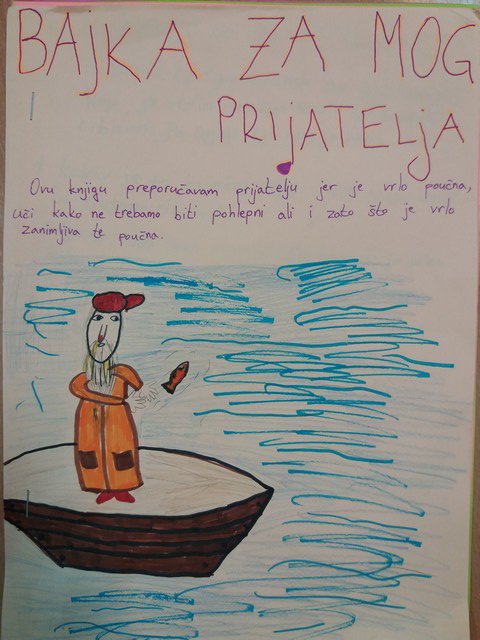 BAJKA ZA MOG
PRIJATELJA
Ovu knjigu preporučavam prijatelju jer je vrlo poučna,
uči kako ne trebamo biti pohlepni ali i zato što je vrlo
zanimljiva te poučna.